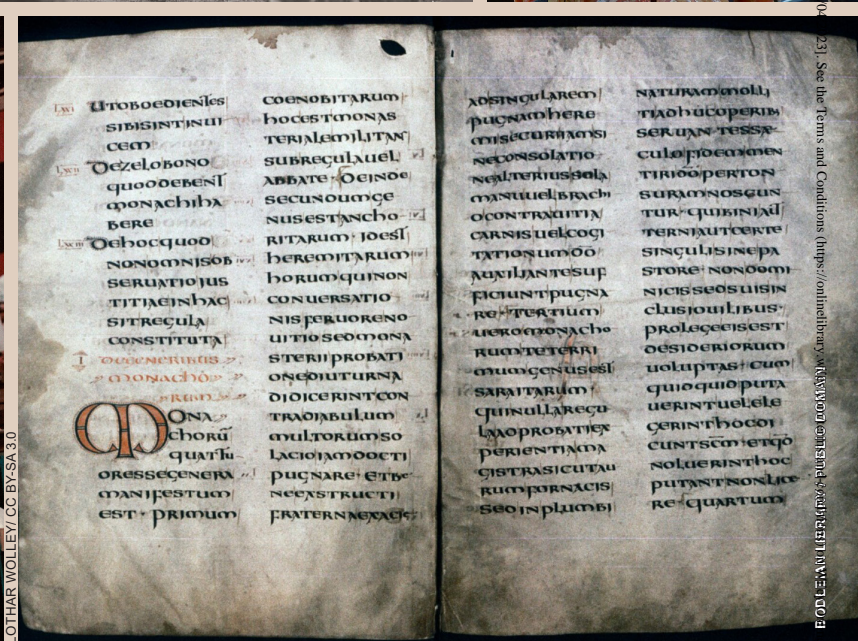 LXVI UTOBOEDIENTES
SIBISINTINUI
CEM
LXVII DEZELOBONO
QUODDEBENT
MONACHIHA
BERE
LXVIII DEHOCQUOD
NONOMNISOB
SERUATIOIUS
TITIAEINHAC
SITREGULA
CONSTITUTA
I DEGENERIBUS
MONACHO
RUM
MONA
CHORŪ
QUATTU
ORESSEGENERA
MANIFESTUM
EST · PRIMUM
COENOBITARUM
HOCESTMONAS
TERIALEMILITAN
SUBREGULAUEL
ABBATE · DEINDE
SECUNDUMGE
NUSESTANCHO
RITARUM · IDEST
HEREMITARUM
HORUMQUINON
CONUERSATIO
NISFERUORENO
UITIOSEDMONA
STERIIPROBATI
ONEDIUTURNA
DIDICERINTCON
TRADIABULUM
MULTORUMSO
LACIOIAMDOCTI
PUGNARE · ETBE
NEEXSTRUCTI
FRATERNAEXACIE
ADSINGULAREM
PUGNAMHERE
MISECURIIAMSI
NECONSOLATIO
NEALTERIUSSOLA
MANUUELBRACHI
OCONTRAUITIA
CARNISUELCOGI
TATIONUMDŌ
AUXILIANTESUF
FICIUNTPUGNA
RE · TERTIUM
UEROMONACHO
RUMTETERRI
MUMGENUSEST
SARAITARUM ·
QUINULLAREGU
LAADPROBATIEX
PERIENTIAMA
GISTRASICUTAU
RUMFORNACIS
SEDINPLUMBI
NATURAMMOLLI
TIADHUCOPERIB
SERUANTESSAE
CULOFIDEMMEN
TIRIDŌPERTON
SURAMNOSCUN
TUR · QUIBINIAUT
TERNIAUTCERTE
SINGULISINEPA
STORE · NONDOMI
NICISSEDSUISIN
CLUSIOUILIBUS ·
PROLEGEEISEST
DESIDERIORUM
UOLUPTAS · CUM
QUIDQUIDPUTA
UERINTUELELE
GERINTHOCDI
CUNTSCM̄ · ETQD̄
NOLUERINTHOC
PUTANTNONLICE
RE · QUARTUM
LOTHAR WOLLEY/ CC BY-SA 3.0
23]. See the Terms and Conditions (https://onlinelibrary.
BODLEIAN LIBRARY / PUBLIC DOMAIN